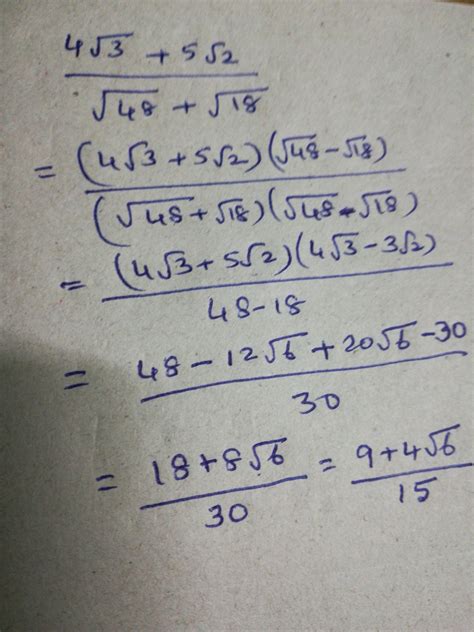 4√3 + 5√2
√48 + √18
= (4√3 + 5√2)(√48 - √18)
(√48 + √18)(√48 - √18)
= (4√3 + 5√2)(4√3 - 3√2)
48 - 18
= 48 - 12√6 + 20√6 - 30
30
= 18 + 8√6 = 9 + 4√6
30 15